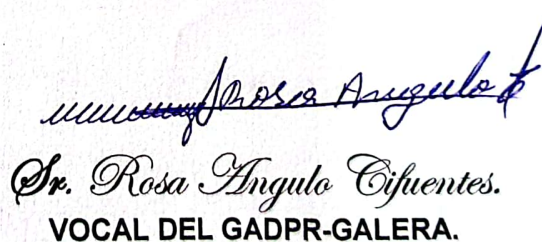 Rosa Angulo
Sr. Rosa Angulo Cifuentes.
VOCAL DEL GADPR-GALERA.